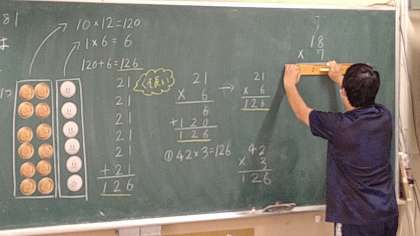 81
は
10×12=120
1×6=6
120+6=126
21
21
21
21
21
+21
126
21
×6
6
+120
126
→
21
×6
126
①42×3=126
42
×3
126
18
×7